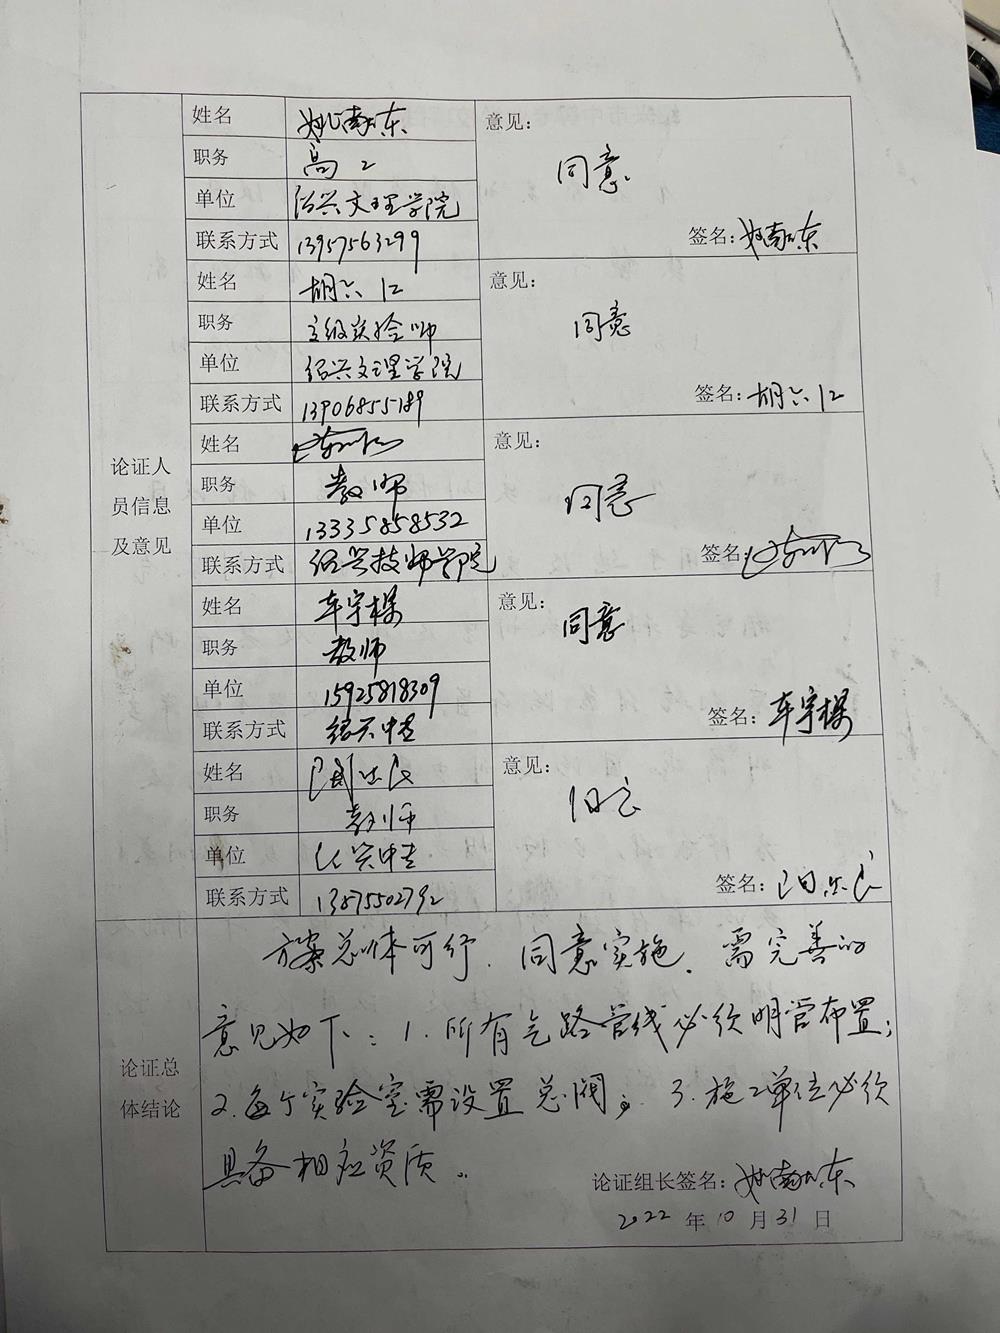 姓名
意见：
职务 高工
同意
单位 绍兴文理学院
签名：
联系方式 13957563299
姓名 胡六江
意见：
职务 高级实验师
同意
单位 绍兴文理学院
签名：胡六江
联系方式 13906855189
姓名
意见：
职务 教师
同意
单位 13335858532
签名：
联系方式 绍兴技师学院
姓名 车宇樑
意见：
职务 教师
同意
单位 15925818309
签名：车宇樑
联系方式 绍兴中专
姓名
意见：
职务 教师
同意
单位 绍兴中专
签名：
联系方式 13875502792
论证人
员信息
及意见
方案总体可行，同意实施，需完善的
意见如下：1.所有气路管线必须明管布置；
2.每个实验室需设置总阀；3.施工单位必须
具备相应资质。
论证总
体结论
论证组长签名：
2022年10月31日